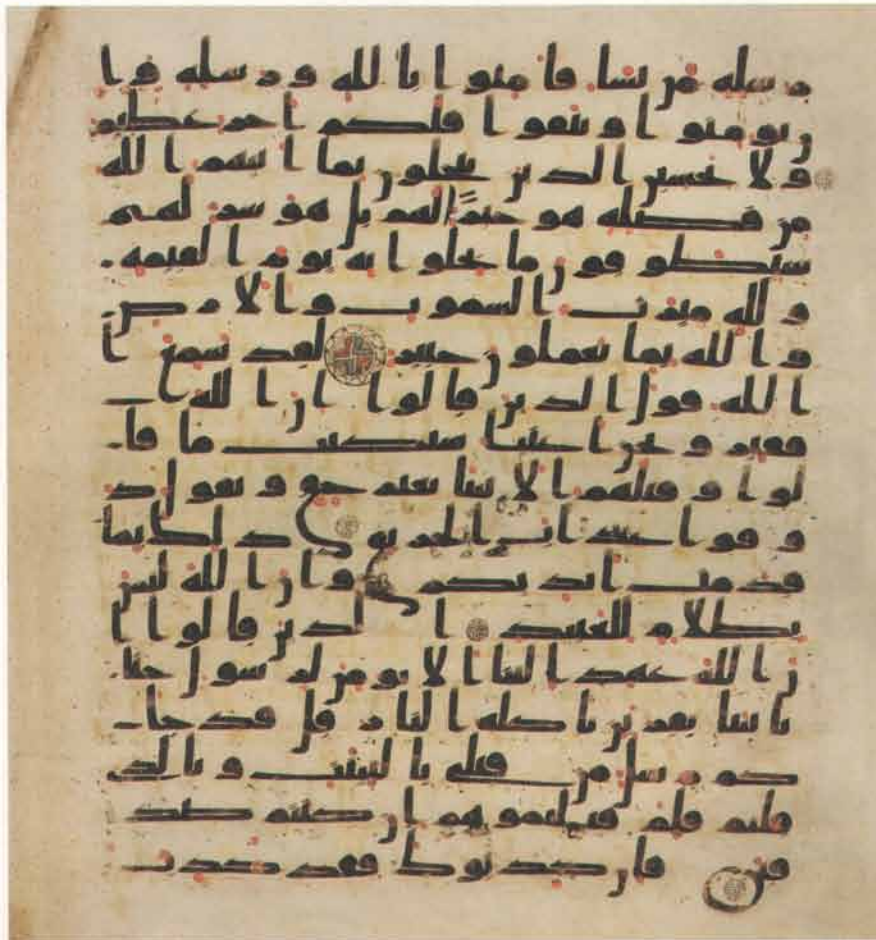 رسله من يشا فامنوا بالله ورسله وا
ن تومنوا وتتقوا فلكم اجر عظيم
ولا يحسبن الذين يبخلون بما اتيهم الله
من فضله هو خيرا لهم بل هو شر لهم
سيطوقون ما بخلوا به يوم القيمه
ولله ميرث السموت والارض
والله بما تعملون خبير لقد سمع ا
لله قول الذين قالوا ان الله
فقير ونحن اغنيا سنكتب ما قا
لوا وقتلهم الانبيا بغير حق ونقول ذ
وقوا عذاب الحريق ذلك بما
قدمت ايديكم وان الله ليس
بظلام للعبيد الذين قالوا ا
ن الله عهد الينا الا نومن لرسول حتا
ياتينا بقربن تاكله النار قل قد جا
كم رسل من قبلي بالبينت وبالذي
قلتم فلم قتلتموهم ان كنتم صد
قين فان كذبوك فقد كذب